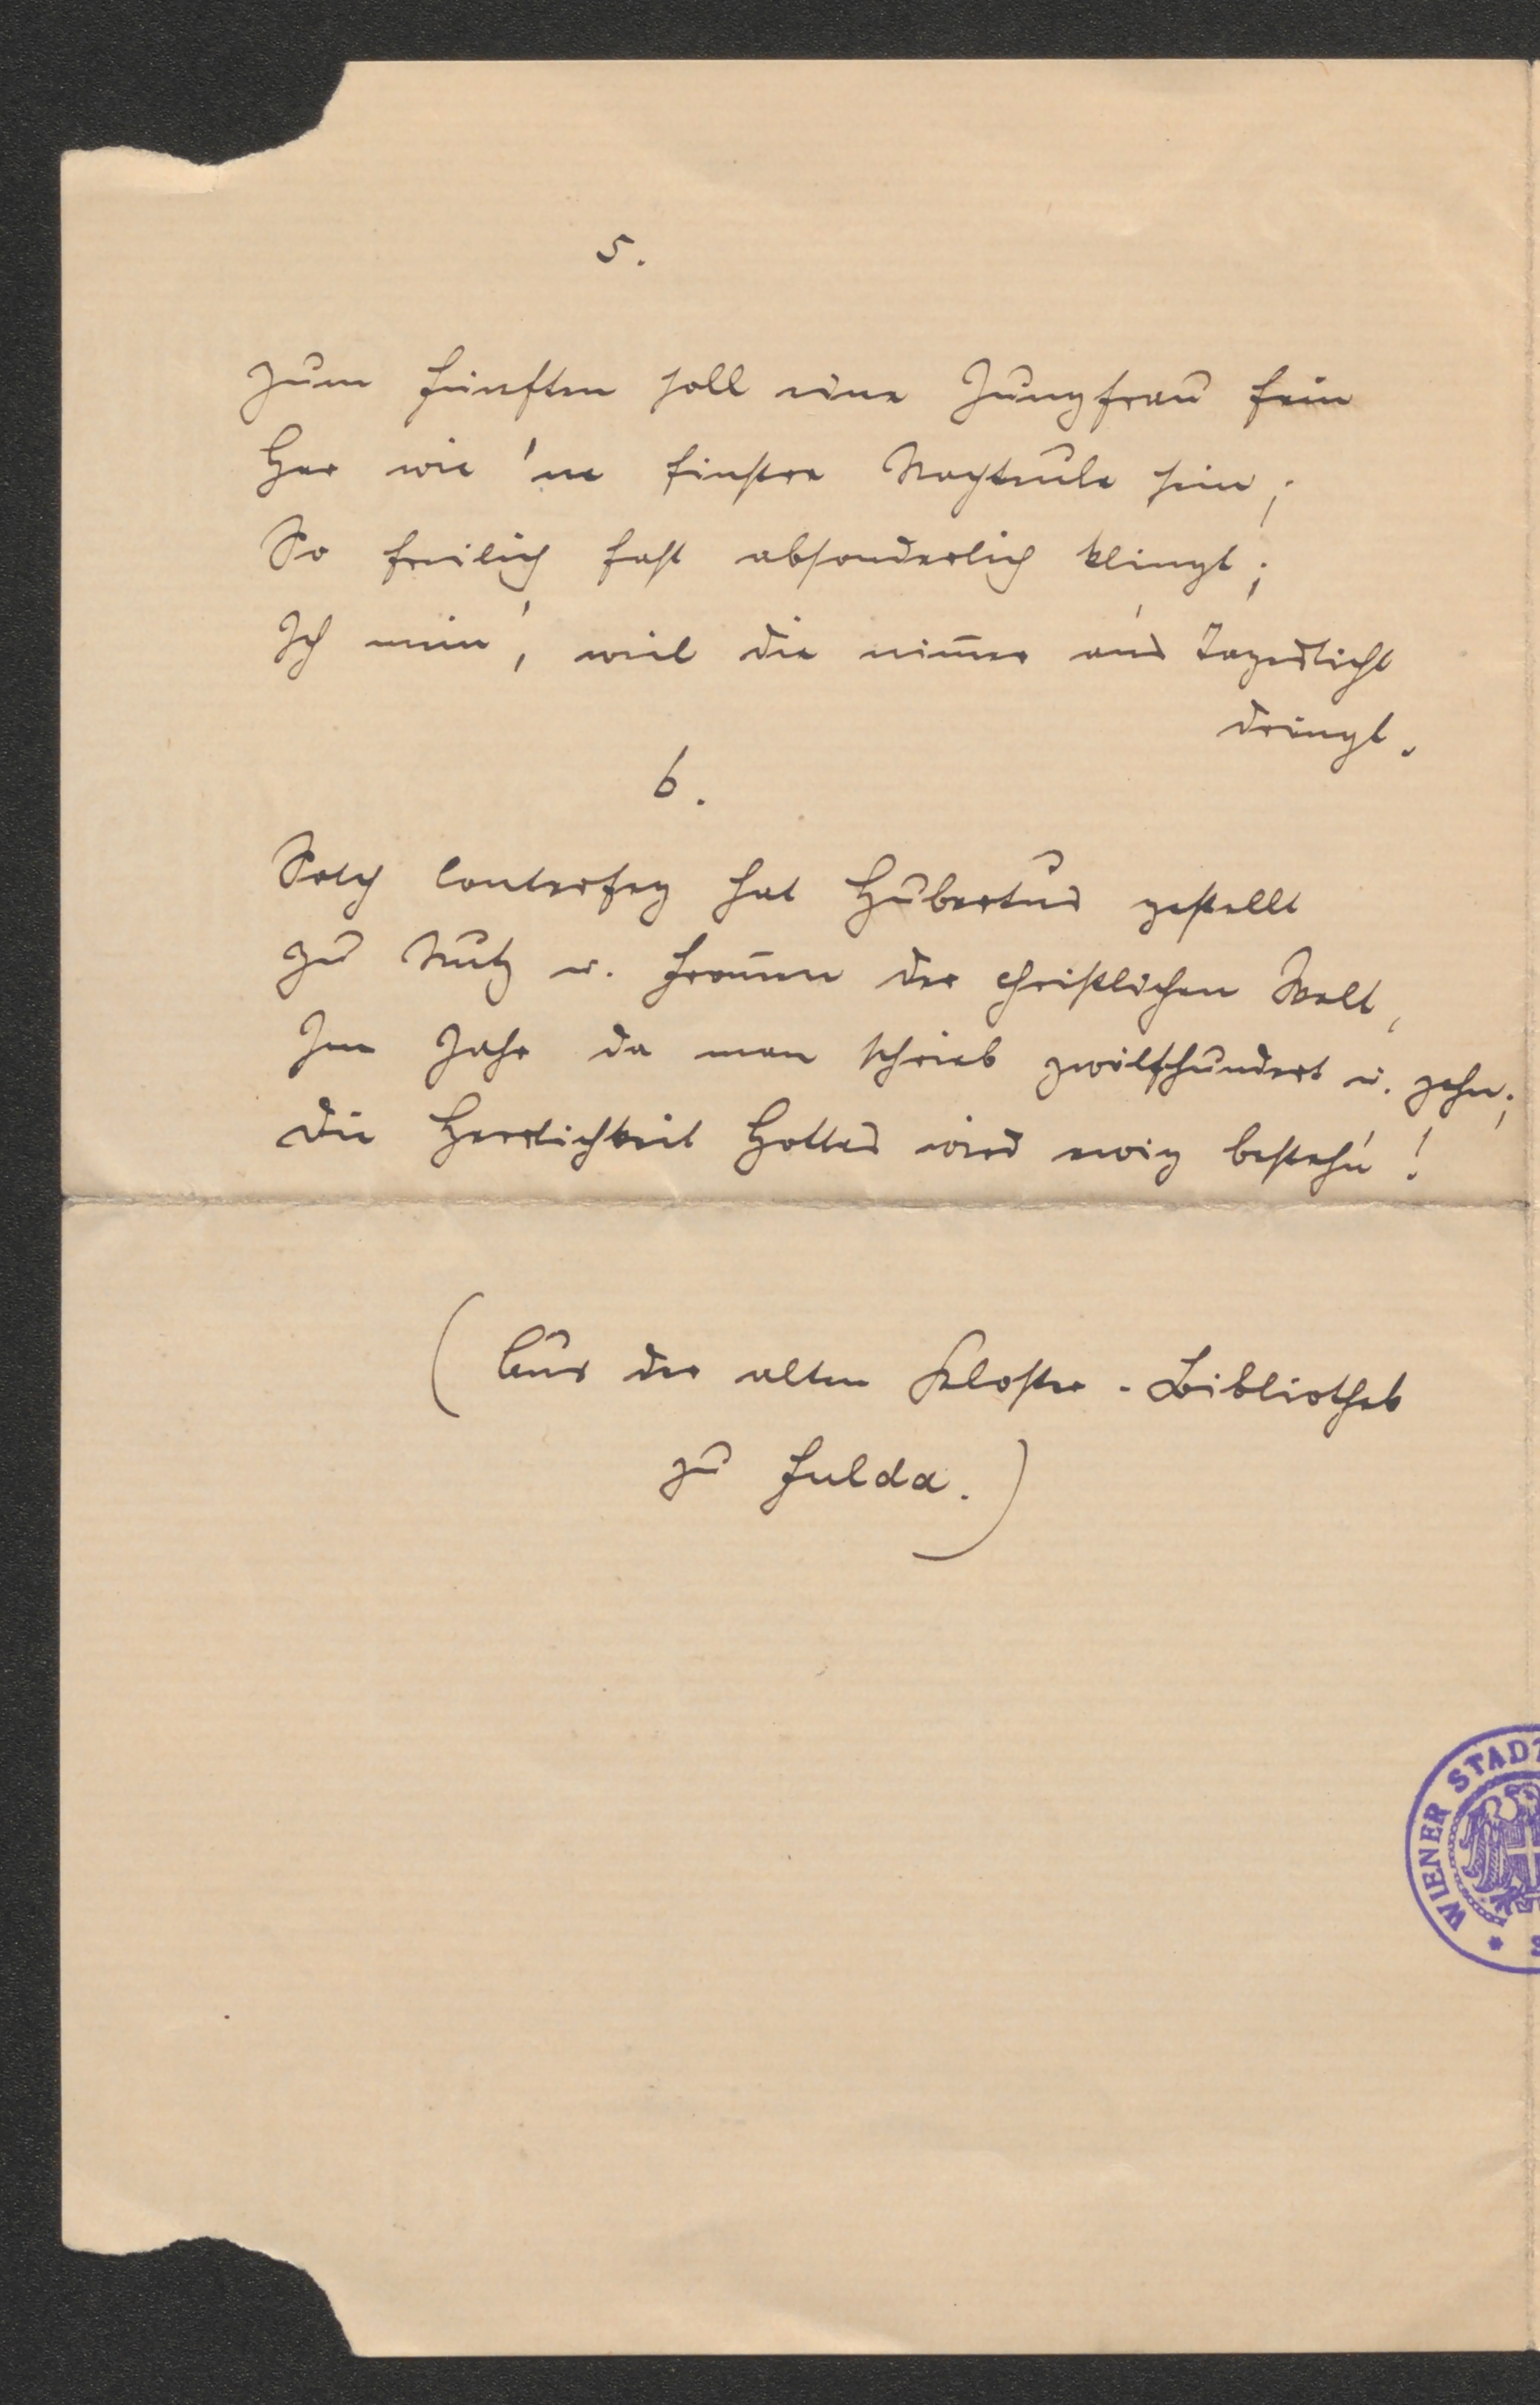 5.
Zum fünften soll eine Jungfrau fein
Gar wie 'ne finstre Nachteule sein;
So freilich fast absonderlich klingt;
Ich mein', weil die nim̅er an's Tageslicht
dringt.
6.
Solch Conterfey hat Hubertus gestellt
Zu Nutz u. From̅en der christlichen Welt,
Im Jahr da man schrieb zwölfhundert u. zehn;
Die Herrlichkeit Gottes wird ewig besteh'n!
(Aus der alten Kloster-Bibliothek
zu Fulda.)
WIENER STADT
* S